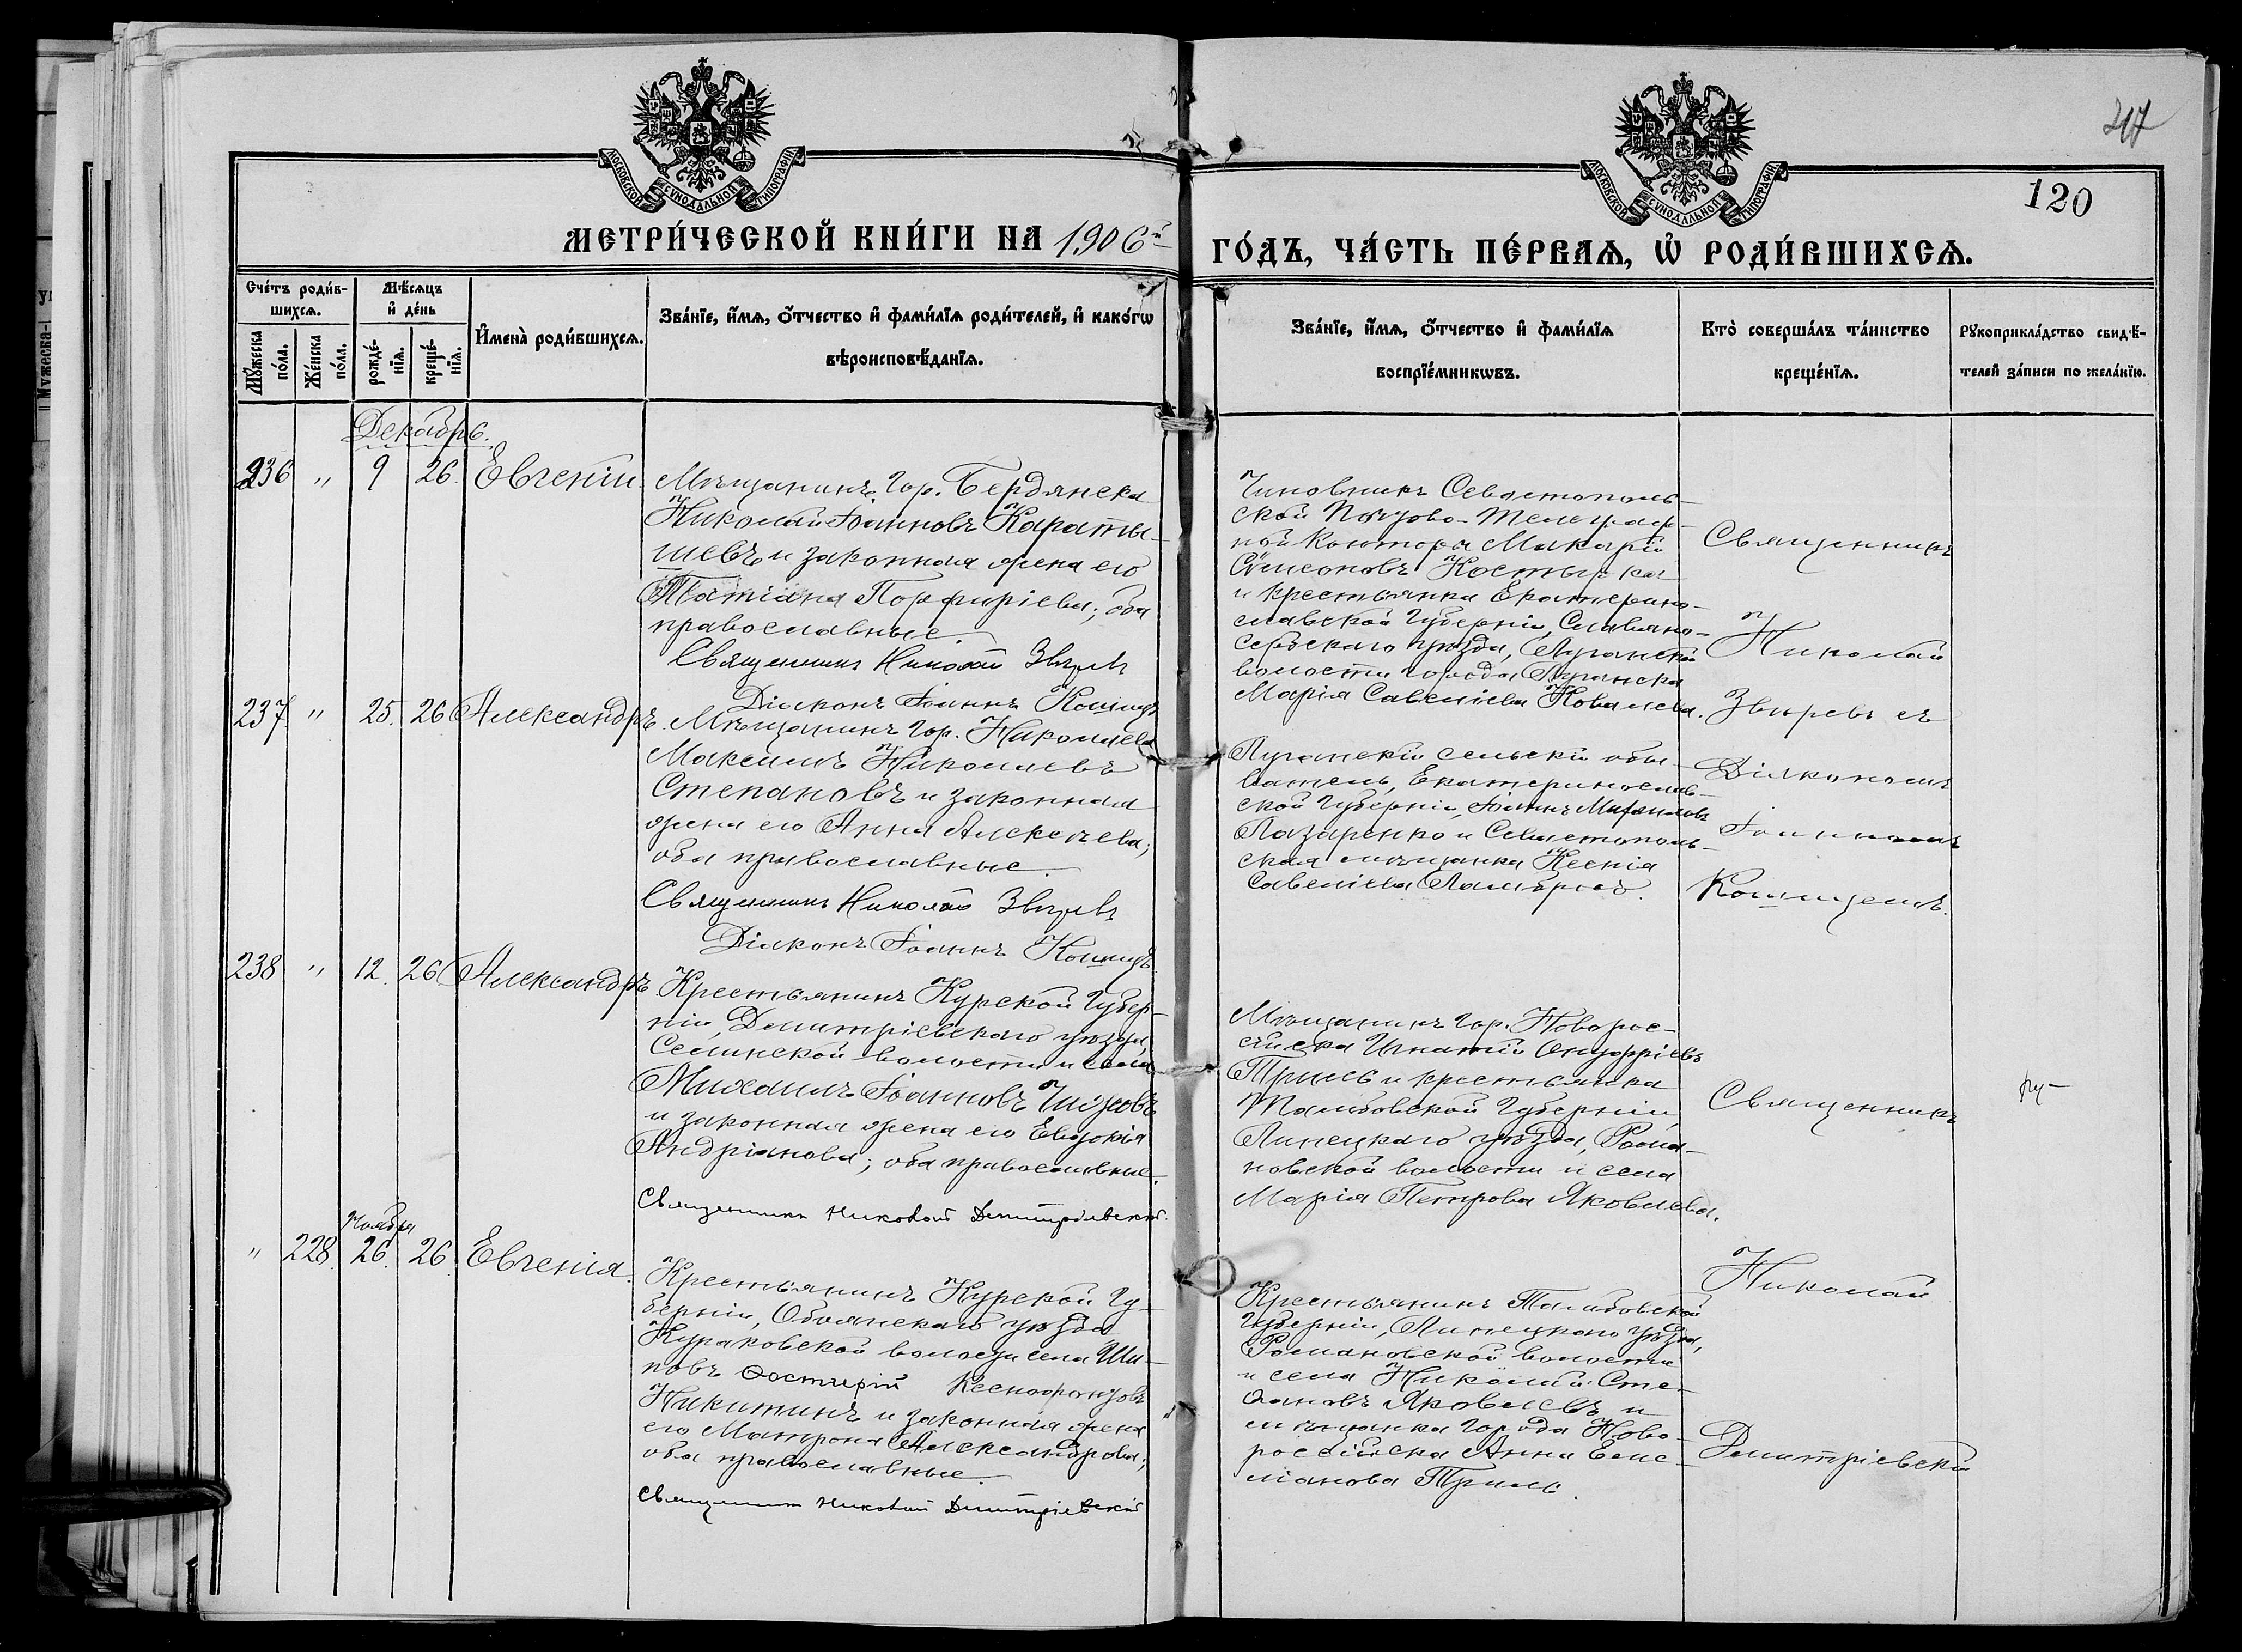 МОСКОВСКОЙ СѴНОДАЛЬНОЙ ТИПОГРАФІИ
МОСКОВСКОЙ СѴНОДАЛЬНОЙ ТИПОГРАФІИ
120
МЕТРИ́ЧЕСКОЙ КНИ́ГИ НА 1906й
ГО́ДЪ, ЧА́СТЬ ПЕ́РВАѦ, Ѡ҆ РОДИ́ВШИХСѦ.
Сче́тъ роди́в-
шихсѧ.
Мꙋ́жеска
по́ла.
Же́нска
по́ла.
Мѣ́сѧцъ
и҆ де́нь
рожде́-
нїѧ.
креще́-
нїѧ.
И҆мена̀ роди́вшихсѧ.
Зва́нїе, и҆́мѧ, ѻ҆́тчество и҆ фами́лїѧ роди́телей, и҆ како́гѡ
вѣроисповѣ́данїѧ.
Зва́нїе, и҆́мѧ, ѻ҆́тчество и҆ фами́лїѧ
воспрїе́мникѡвъ.
Кто̀ соверша́лъ та́инство
креще́нїѧ.
Рꙋкоприкла́дство свидѣ́-
телей за́писи по жела́нїю.
Декабрь.
236 " 9 26. Евгеній.
Мѣщанинъ гор. Бердянска
Николай Іоанновъ Караты-
шевъ и законная жена его
Татіана Порфиріева; оба
православные.
Священникъ Николай Звѣревъ
Діаконъ Іоаннъ Кошицъ
Чиновникъ Севастополь-
ской Почтово-Телеграф-
ной Конторы Макарій
Сѵмеоновъ Костырка
и крестьянка Екатерино-
славской губерніи, Славяно-
сербскаго уѣзда, Луганской
волости города Луганска
Марія Савеліева Ковалева.
Священникъ
Николай
Звѣревъ съ
Діакономъ
Іоанномъ
Кошицемъ.
237. " 25. 26. Александръ.
Мѣщанинъ гор. Николаева
Максимъ Николаевъ
Степановъ и законная
жена его Анна Алексѣева;
оба православные.
Священникъ Николай Звѣревъ
Діаконъ Іоаннъ Кошицъ.
Луганскій сельскій обы-
ватель, Екатеринослав-
ской губерніи, Іоаннъ Михаиловъ
Лазаренко и Севастополь-
ская мѣщанка Ксенія
Савеліева
238 " 12. 26. Александръ
Крестьянинъ Курской губер-
ніи, Димитріевскаго уѣзда,
волости и села
Михаилъ Іоанновъ
и законная жена его Евдокія
Андріанова; оба православные.
Священникъ Николай Димитріевскій.
Мѣщанинъ гор. Новорос-
сійска Игнатій Онуфріевъ
Триль и крестьянка
Тамбовской губерніи,
Липецкаго уѣзда, Рома-
новской волости и села
Марія Петрова Яковлева.
Священникъ
Николай
Димитріевскій
Ноября
" 228. 26. 26. Евгенія.
Крестьянинъ Курской гу-
берніи, Обоянскаго уѣзда
Кураковской волости села Ши-
повъ Ксенофонтовъ
Никитинъ и законная жена
его Матрона Александрова;
оба православные.
Священникъ Николай Димитріевскій
Крестьянинъ Тамбовской
губерніи, Липецкаго уѣзда,
Романовской волости
и села Николай Сте-
фановъ Яковлевъ и
мѣщанка города Ново-
россійска Анна
Триль.